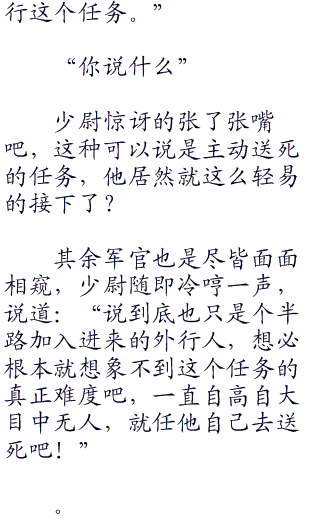 行这个任务。”
“你说什么”
少尉惊讶的张了张嘴
吧，这种可以说是主动送死
的任务，他居然就这么轻易
的接下了？
其余军官也是尽皆面面
相窥，少尉随即冷哼一声，
说道：“说到底也只是个半
路加入进来的外行人，想必
根本就想象不到这个任务的
真正难度吧，一直自高自大
目中无人，就任他自己去送
死吧！”
。